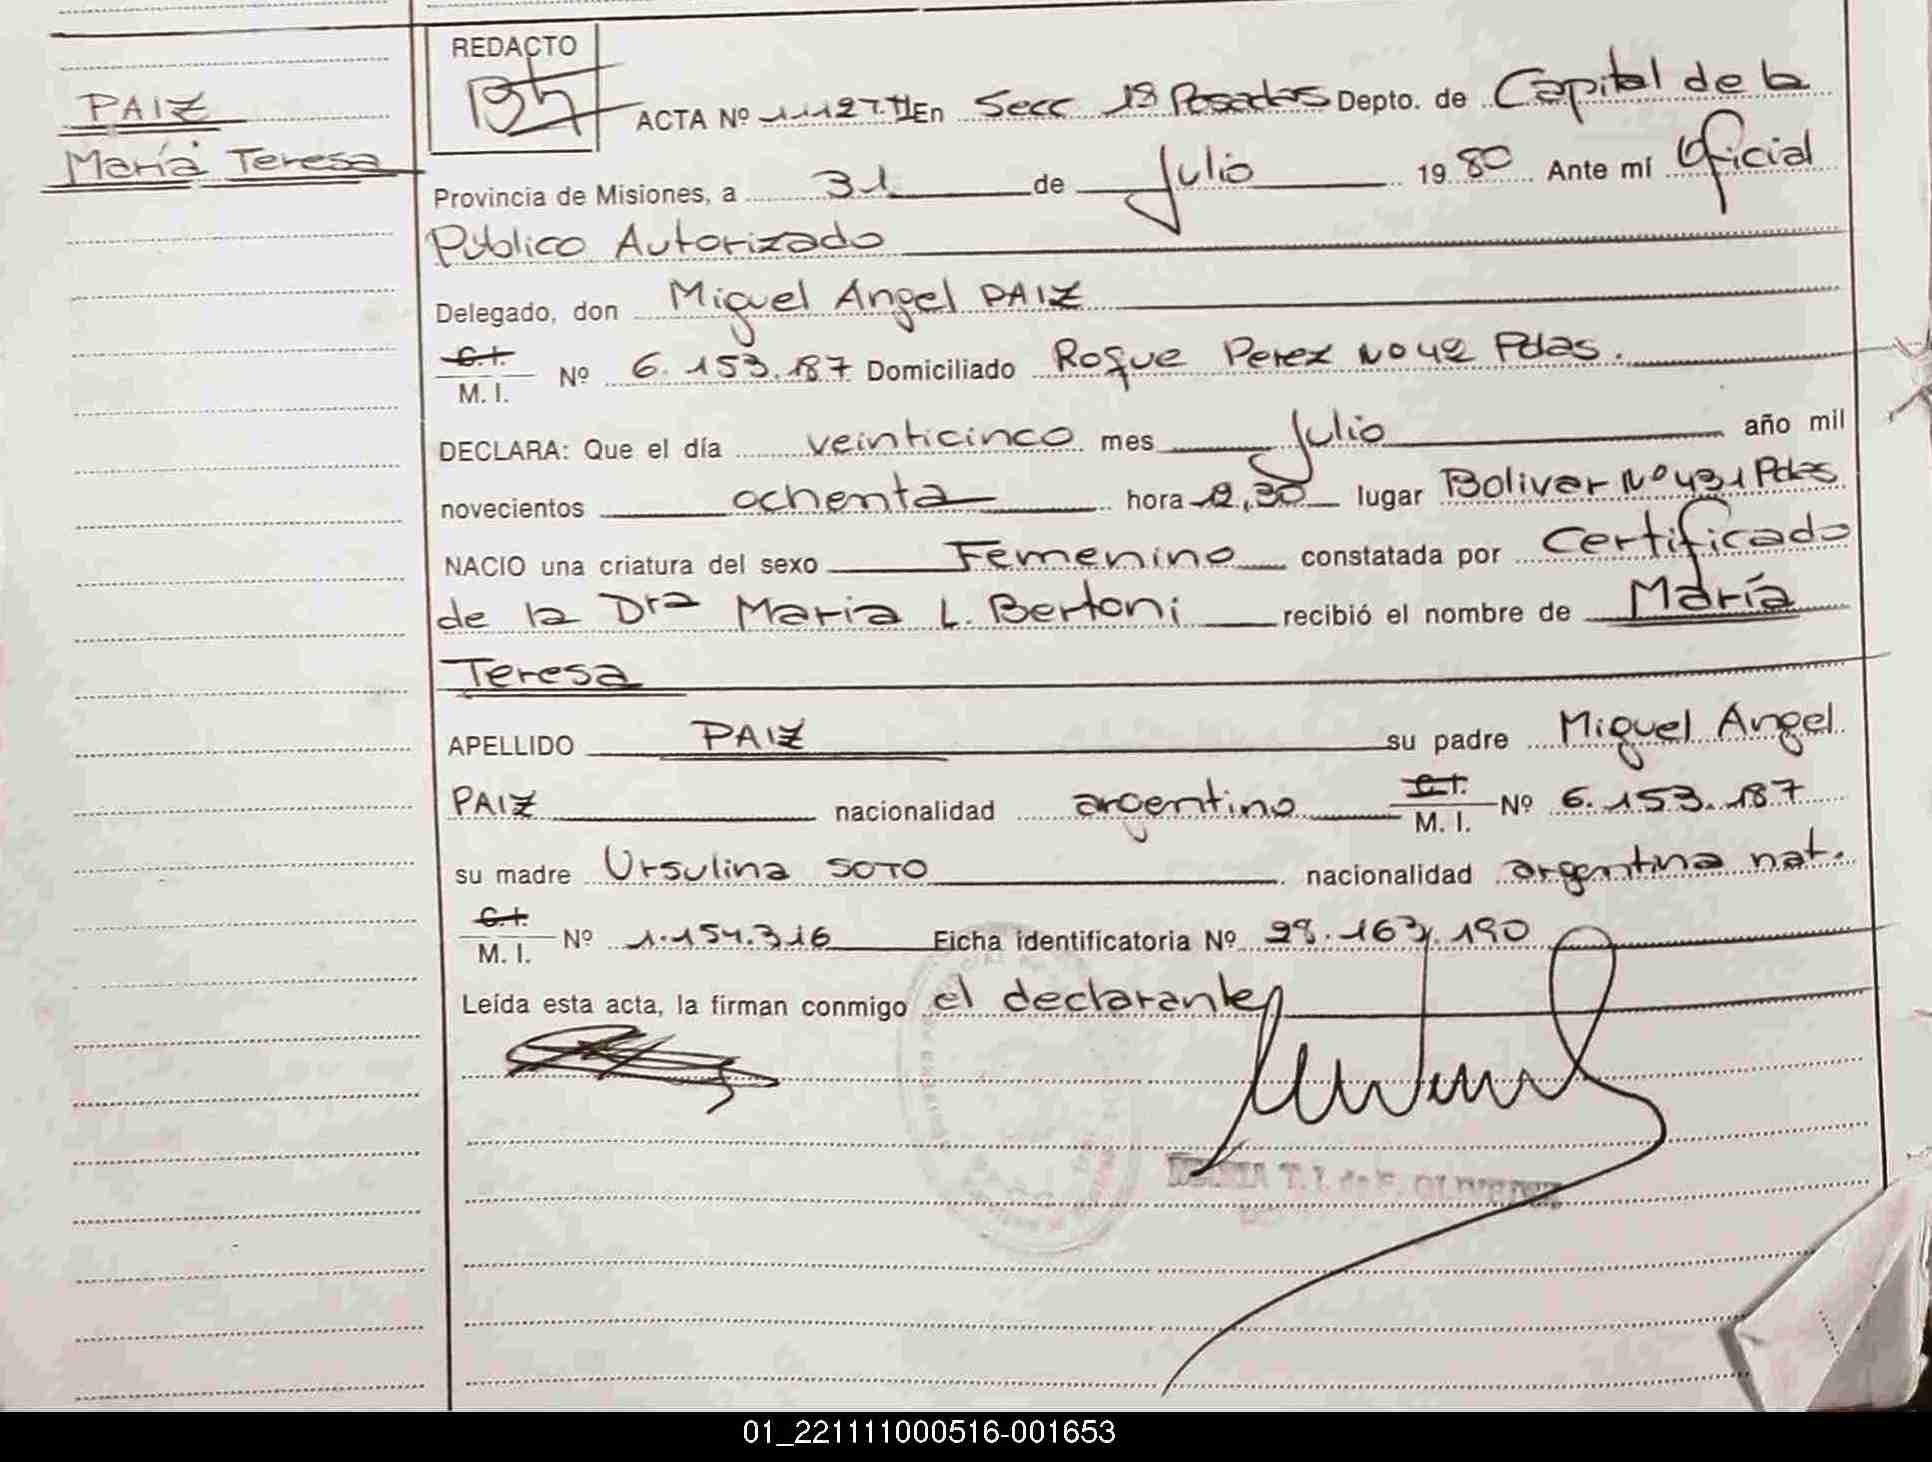 PAIZ
María Teresa
REDACTO
ACTA Nº 1127.TI En Secc 1ª Posadas Depto. de Capital de la
Provincia de Misiones, a 31 de Julio 1980 Ante mí Oficial
Público Autorizado
Delegado, don Miguel Angel PAIZ
C.I.
M. I. Nº 6.153.187 Domiciliado Roque Perez Nº 42 Pdas.
DECLARA: Que el día veinticinco mes Julio año mil
novecientos ochenta hora 2,30 lugar Bolivar Nº 431 Pdas
NACIO una criatura del sexo Femenino constatada por Certificado
de la Dra Maria L. Bertoni recibió el nombre de María
Teresa
APELLIDO PAIZ su padre Miguel Angel
PAIZ nacionalidad argentino C.I.
M. I. Nº 6.153.187
su madre Ursulina SOTO nacionalidad argentina nat.
C.I.
M. I. Nº 1.154.316 Ficha identificatoria Nº 28.163.190
Leída esta acta, la firman conmigo el declarante
01_221111000516-001653